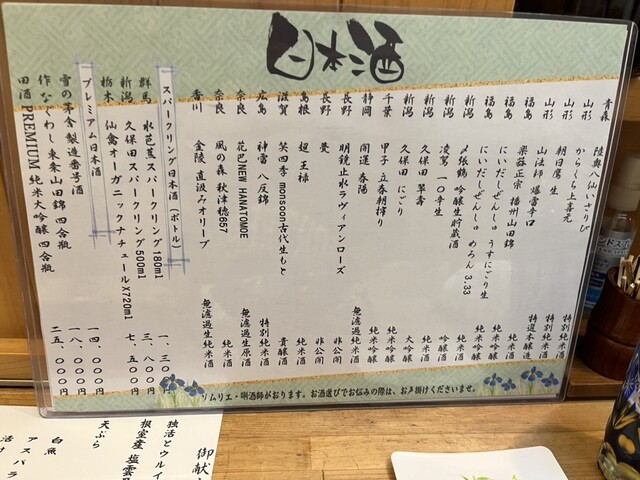 日本酒
青森 陸奥八仙 いさりび 特別純米酒
山形 からくち上喜元 特別純米酒
山形 朝日鷹 生 特選本醸造
山形 山法師 爆雷辛口 純米酒
福島 楽器正宗 播州山田錦
福島 にいだしぜんしゅ うすにごり生 純米酒
福島 にいだしぜんしゅ めろん 3.33 純米吟醸
新潟 〆張鶴 吟醸生貯蔵酒 吟醸酒
新潟 凌駕 一〇辛生 純米酒
新潟 久保田 翠寿 大吟醸
新潟 久保田 にごり
千葉 甲子 立春朝搾り 純米吟醸
静岡 開運 春陽 純米吟醸
長野 明鏡止水 ラヴィアンローズ 無濾過純米酒
長野 非公開
島根 超 王禄 純米酒
滋賀 笑四季 monsoon 古代生もと 貴醸酒
広島 神雷 八反錦 特別純米酒
奈良 花巴 NEW HANATOMOE
奈良 風の森 秋津穂657 無濾過生原酒
香川 金陵 直汲みオリーブ 無濾過生純米酒
スパークリング日本酒(ボトル)
群馬 水芭蕉スパークリング180ml
新潟 久保田スパークリング500ml 三、八〇〇円
栃木 仙禽オーガニックナチュールX720ml 七、五〇〇円
プレミアム日本酒
雪の茅舎 製造番号酒 一四、〇〇〇円
作 なぐわし 東条山田錦 四合瓶 一八、〇〇〇円
田酒 PREMIUM 純米大吟醸 四合瓶 二五、〇〇〇円
ソムリエ・唎酒師がおります。お酒選びでお悩みの際は、お声掛けくださいませ。
御献
独活とウルイ
根室産 塩雲
天ぷら
白魚
アスパラ